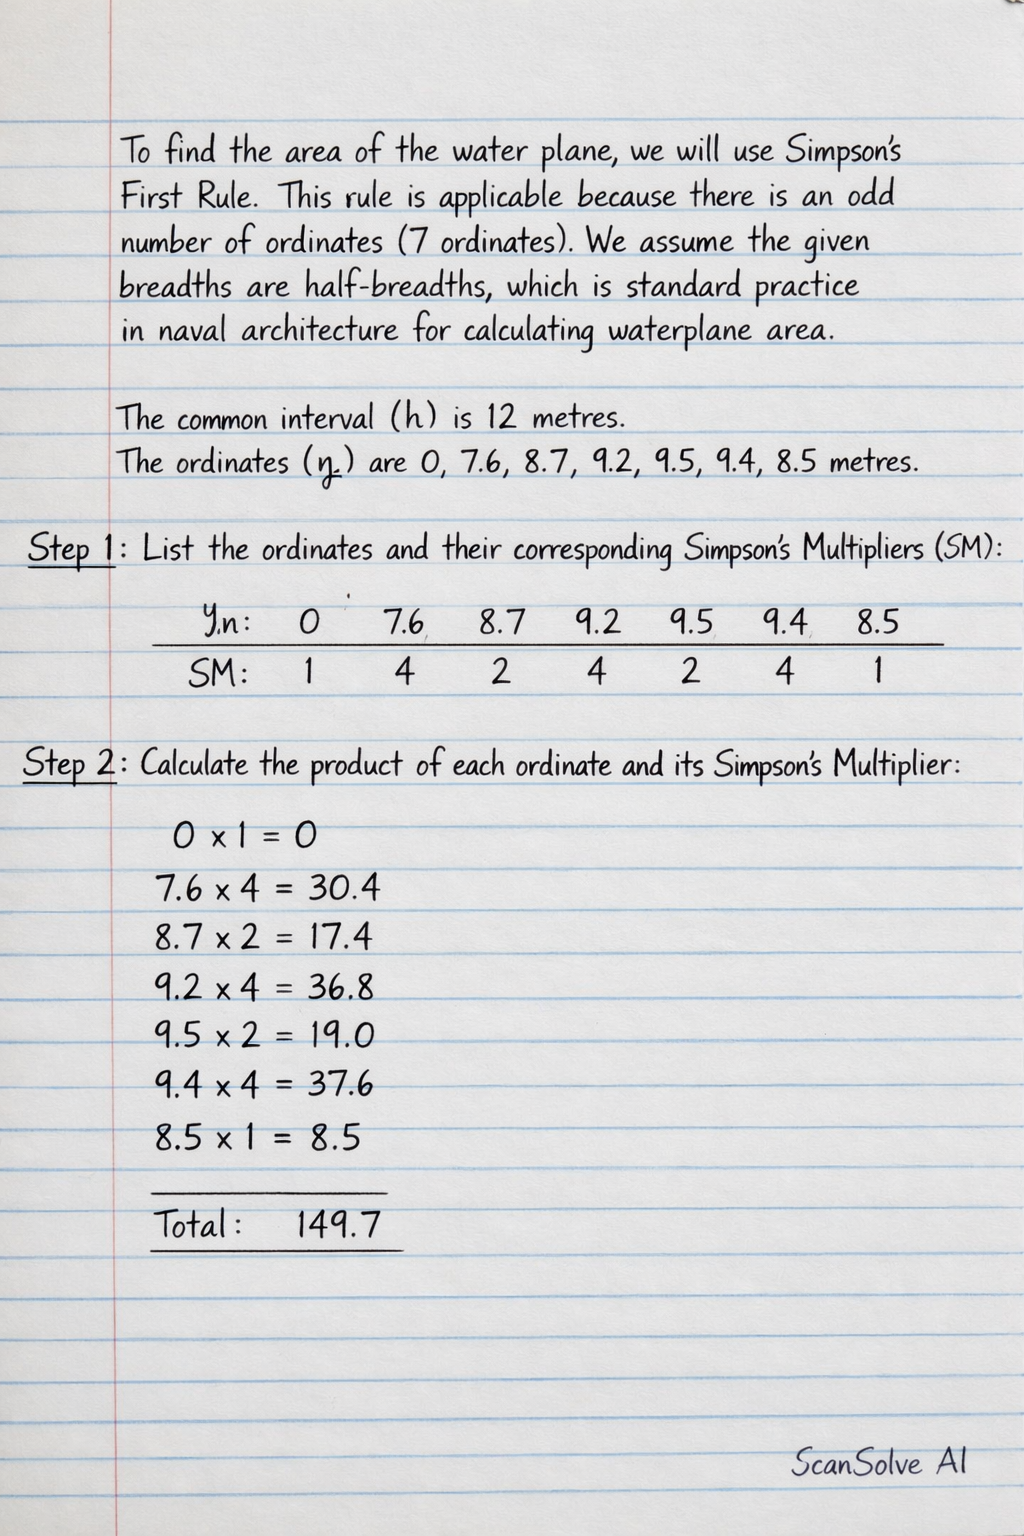 To find the area of the water plane, we will use Simpson's
First Rule. This rule is applicable because there is an odd
number of ordinates (7 ordinates). We assume the given
breadths are half-breadths, which is standard practice
in naval architecture for calculating waterplane area.
The common interval (h) is 12 metres.
The ordinates (y) are 0, 7.6, 8.7, 9.2, 9.5, 9.4, 8.5 metres.
Step 1: List the ordinates and their corresponding Simpson's Multipliers (SM):
y.n: 0 7.6 8.7 9.2 9.5 9.4 8.5
SM: 1 4 2 4 2 4 1
Step 2: Calculate the product of each ordinate and its Simpson's Multiplier:
0 x 1 = 0
7.6 x 4 = 30.4
8.7 x 2 = 17.4
9.2 x 4 = 36.8
9.5 x 2 = 19.0
9.4 x 4 = 37.6
8.5 x 1 = 8.5
Total: 149.7
ScanSolve AI